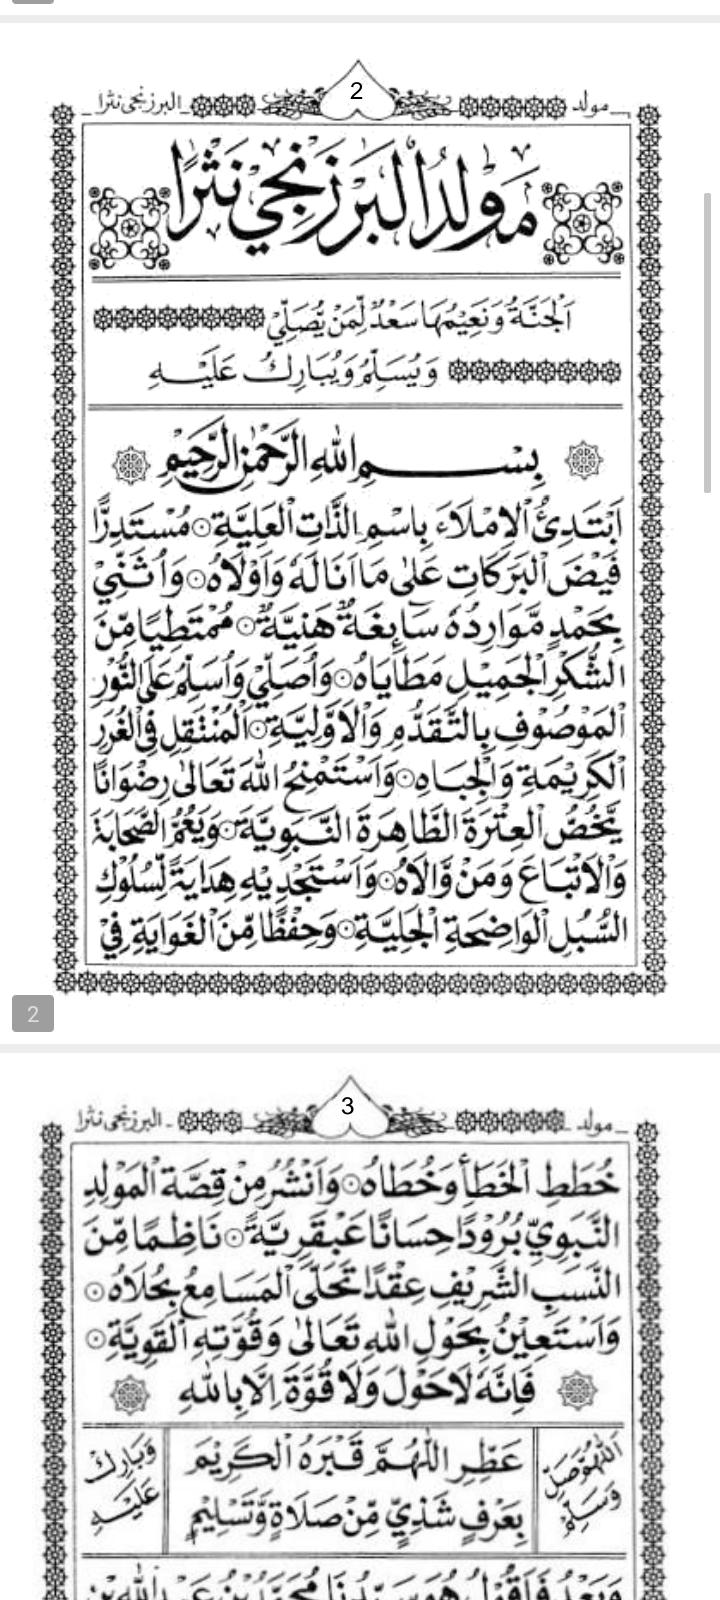 2
مولد البرزنجي نثرا
مَوْلِدُ الْبَرْزَنْجِي نَثْرًا
اَلْجَنَّةُ وَنَعِيْمُهَا سَعْدٌ لِّمَنْ يُّصَلِّيْ
وَيُسَلِّمُ وَيُبَارِكُ عَلَيْهِ
بِسْمِ اللهِ الرَّحْمٰنِ الرَّحِيْمِ
اَبْتَدِئُ الْاِمْلَاءَ بِاسْمِ الذَّاتِ الْعَلِيَّةِ ۞ مُسْتَدِرًّا
فَيْضَ الْبَرَكَاتِ عَلٰى مَا اَنَالَهٗ وَاَوْلَاهُ ۞ وَاُثَنِّيْ
بِحَمْدٍ مَّوَارِدُهٗ سَآئِغَةٌ هَنِيَّةٌ ۞ مُمْتَطِيًا مِّنَ
الشُّكْرِ الْجَمِيْلِ مَطَايَاهُ ۞ وَاُصَلِّيْ وَاُسَلِّمُ عَلَى النُّوْرِ
الْمَوْصُوْفِ بِالتَّقَدُّمِ وَالْاَوَّلِيَّةِ ۞ الْمُنْتَقِلِ فِي الْغُرَرِ
الْكَرِيْمَةِ وَالْجِبَاهِ ۞ وَاَسْتَمْنِحُ اللهَ تَعَالٰى رِضْوَانًا
يَّخُصُّ الْعِتْرَةَ الطَّاهِرَةَ النَّبَوِيَّةَ ۞ وَيَعُمُّ الصَّحَابَةَ
وَالْاَتْبَاعَ وَمَنْ وَّالَاهُ ۞ وَاَسْتَجْدِيْهِ هِدَايَةً لِّسُلُوْكِ
السُّبُلِ الْوَاضِحَةِ الْجَلِيَّةِ ۞ وَحِفْظًا مِّنَ الْغَوَايَةِ فِيْ
2
3
مولد البرزنجي نثرا
خُطَطِ الْخَطَأِ وَخُطَاهُ ۞ وَاَنْشُرُ مِنْ قِصَّةِ الْمَوْلِدِ
النَّبَوِيِّ بُرُوْدًا حِسَانًا عَبْقَرِيَّةً ۞ نَاظِمًا مِّنَ
النَّسَبِ الشَّرِيْفِ عِقْدًا تَحَلَّى الْمَسَامِعُ بِحُلَاهُ ۞
وَاَسْتَعِيْنُ بِحَوْلِ اللهِ تَعَالٰى وَقُوَّتِهِ الْقَوِيَّةِ ۞
فَاِنَّهٗ لَا حَوْلَ وَلَا قُوَّةَ اِلَّا بِاللهِ
اَللّٰهُمَّ صَلِّ
وَسَلِّمْ
عَطِّرِ اللّٰهُمَّ قَبْرَهُ الْكَرِيْمَ
بِعَرْفٍ شَذِيٍّ مِّنْ صَلَاةٍ وَّتَسْلِيْمٍ
وَبَارِكْ
عَلَيْهِ
وَبَعْدُ فَاَقُوْلُ هُوَ سَيِّدُنَا مُحَمَّدُ بْنُ عَبْدِ اللهِ بْنِ